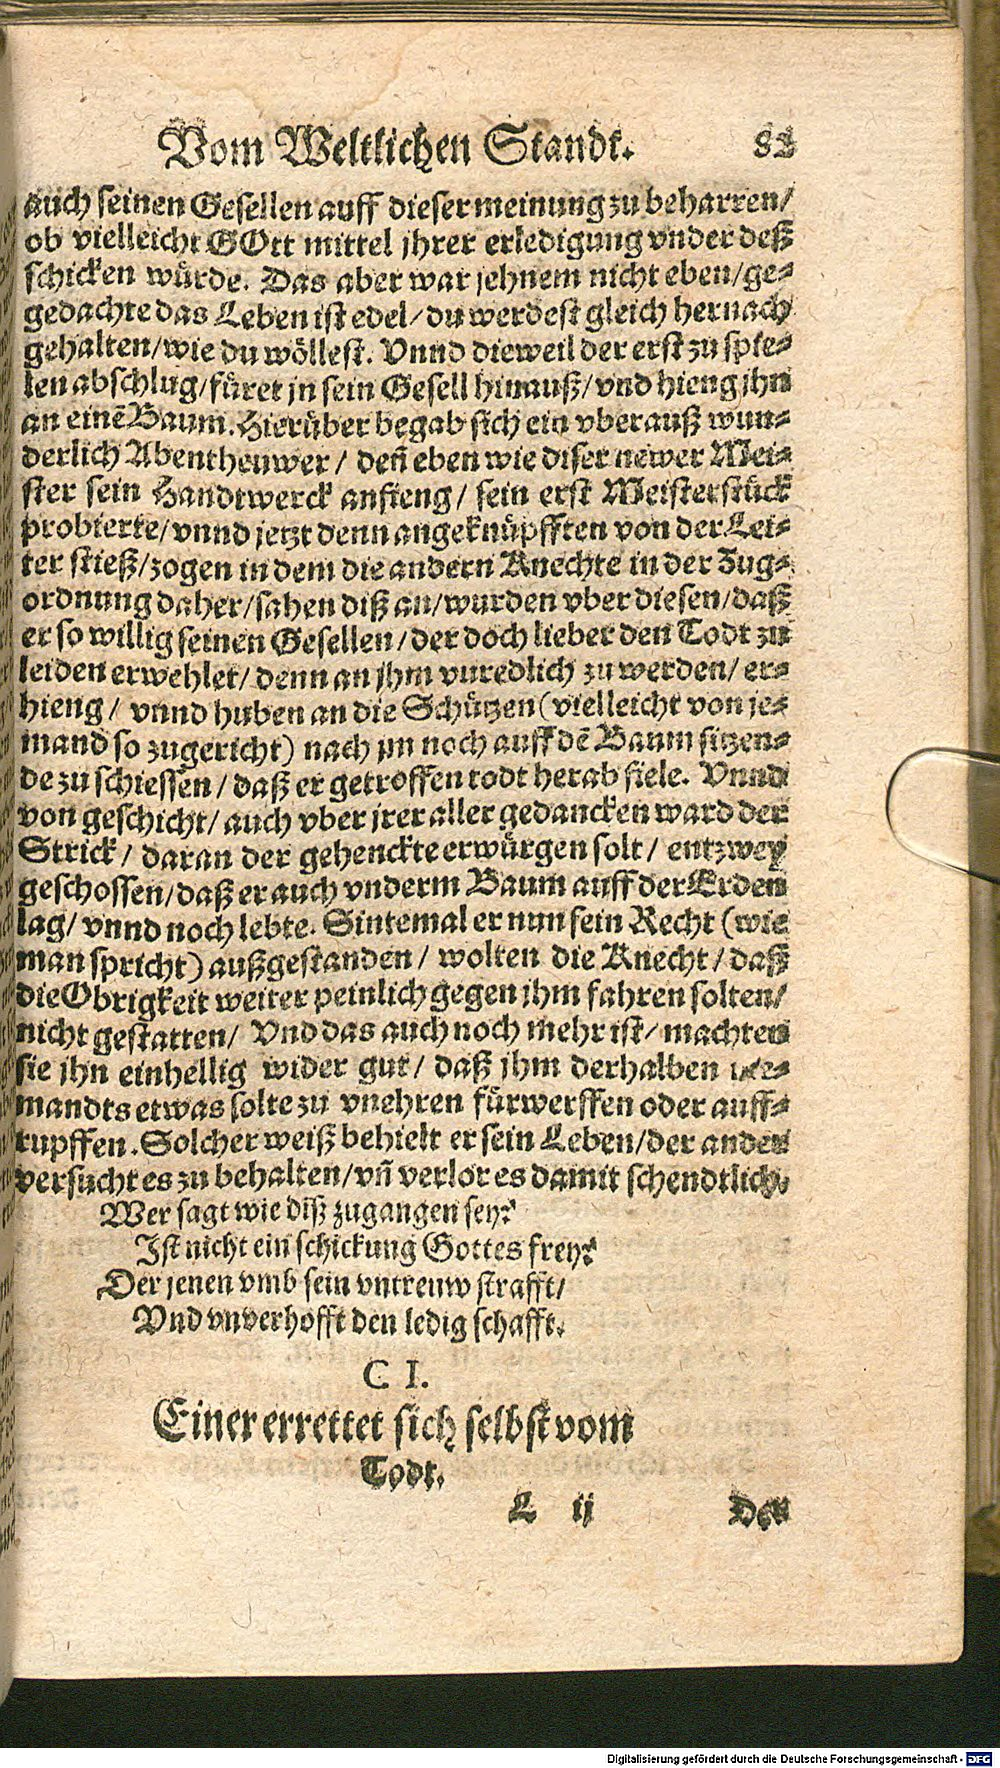 Vom Weltlichen Standt. 82
auch seinen Gesellen auff dieser meinung zu beharren/
ob vielleicht GOtt mittel jhrer erledigung vnder deß
schicken würde. Das aber war jehnem nicht eben/ge-
gedachte das Leben ist edel/du werdest gleich hernach
gehalten/wie du wöllest. Vnnd dieweil der erst zu spie-
len abschlug/füret jn sein Gesell hinauß/vnd hieng jhn
an einē Baum. Hierüber begab sich ein vberauß wun-
derlich Abentheuwer/ deñ eben wie diser newer Mei-
ster sein Handtwerck anfieng/ sein erst Meisterstück
probierte/vnnd jetzt denn angeknüpfften von der Lei-
ter stieß/zogen in dem die andern Knechte in der Zug-
ordnung daher/sahen diß an/wurden vber diesen/daß
er so willig seinen Gesellen/der doch lieber den Todt zu
leiden erwehlet/denn an jhm vnredlich zu werden/ er-
hieng/ vnnd huben an die Schützen (vielleicht von je-
mand so zugericht) nach jm noch auff dē Baum sitzen-
de zu schiessen/daß er getroffen todt herab fiele. Vnnd
von geschicht/auch vber jrer aller gedancken ward der
Strick/ daran der gehenckte erwürgen solt/ entzwey
geschossen/daß er auch vnderm Baum auff der Erden
lag/vnnd noch lebte. Sintemal er nun sein Recht (wie
man spricht) außgestanden/ wolten die Knecht/daß
die Obrigkeit weiter peinlich gegen jhm fahren solten/
nicht gestatten/ Vnd das auch noch mehr ist/machten
sie jhn einhellig wider gut/ daß jhm derhalben nie-
mandts etwas solte zu vnehren fürwerffen oder auff-
rupffen. Solcher weiß behielt er sein Leben/der ander
versucht es zu behalten/vñ verlor es damit schendtlich.
Wer sagt wie diß zugangen sey?
Ist nicht ein schickung Gottes frey?
Der jenen vmb sein vntreuw strafft/
Vnd vnverhofft den ledig schafft.
C I.
Einer errettet sich selbst vom
Todt.
L ij Der
Digitalisierung gefördert durch die Deutsche Forschungsgemeinschaft - DFG